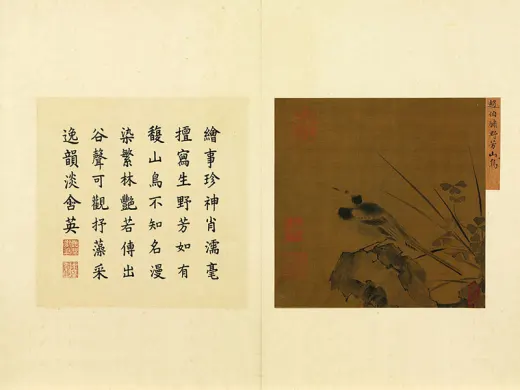 趙伯驌野芳山鳥
繪事珍神肖濡毫
擅寫生野芳如有
馥山鳥不知名漫
染繁林艷若傳出
谷聲可觀抒藻采
逸韻淡含英